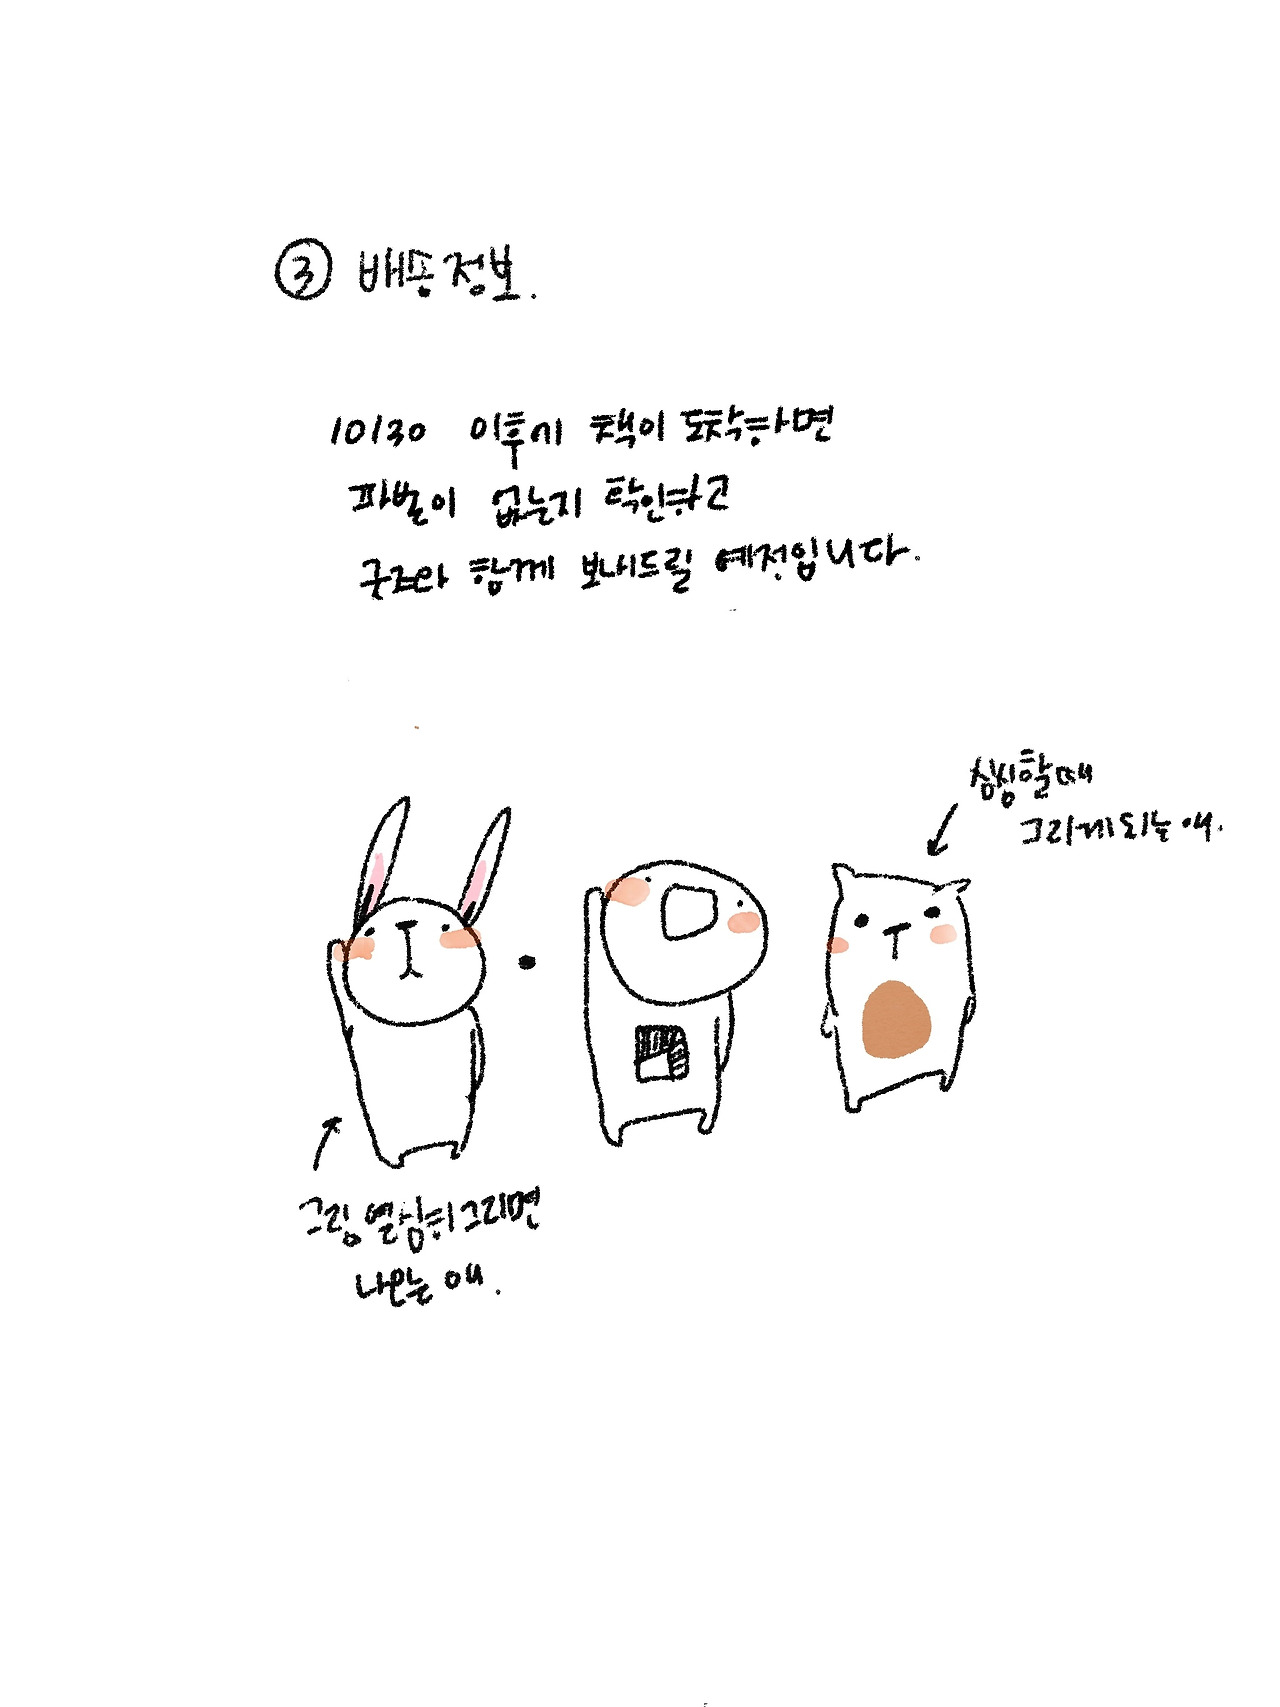 ③ 배송정보.
10/30 이후에 책이 도착하면
파본이 없는지 확인하고
굿즈와 함께 보내드릴 예정입니다.
심심할때
그리게되는 애.
그림 열심히 그리면
나오는 애.